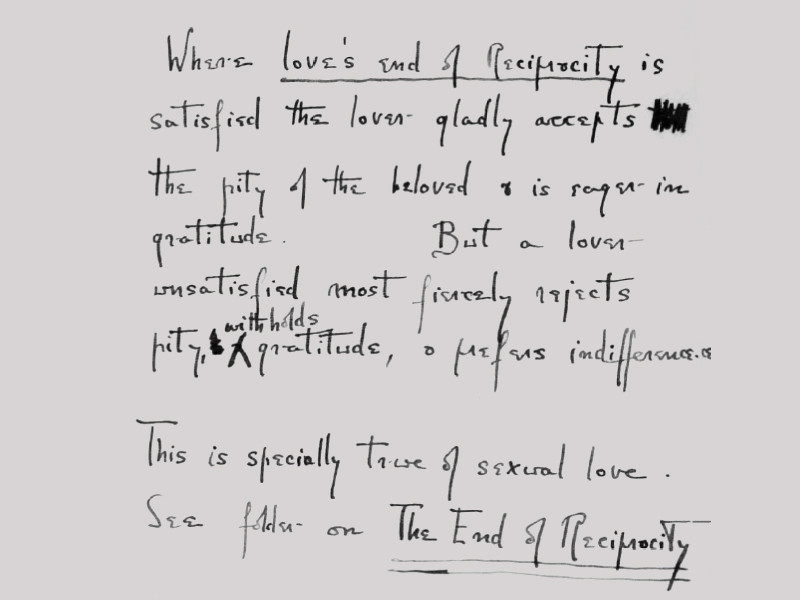 Where love's end of Reciprocity is
satisfied the lover gladly accepts
the pity of the beloved & is eager in
gratitude. But a lover
unsatisfied most fiercely rejects
pity, withholds gratitude, & prefers indifference.
This is specially true of sexual love.
See folder on The End of Reciprocity